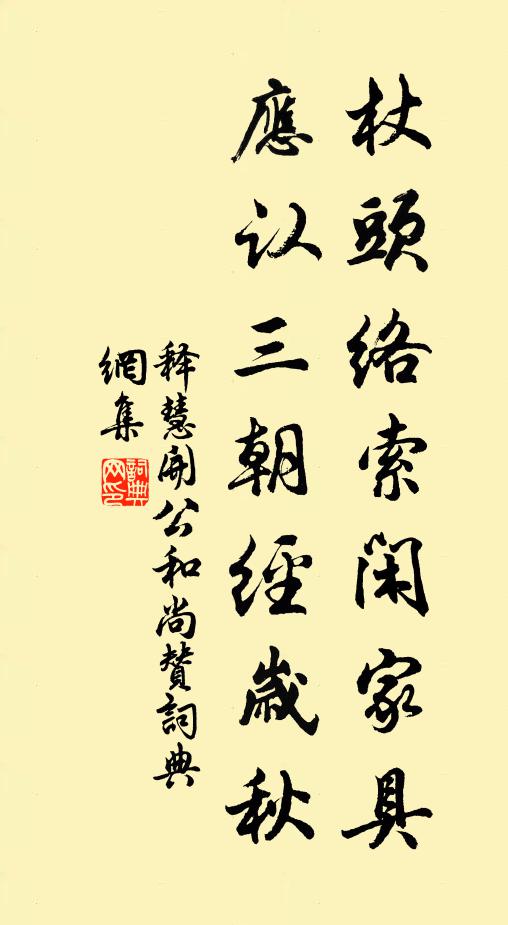 杖頭絡索閑家具
應认三朝經歲秋
释慧開公和尚贊詞典
網集
詞典网印